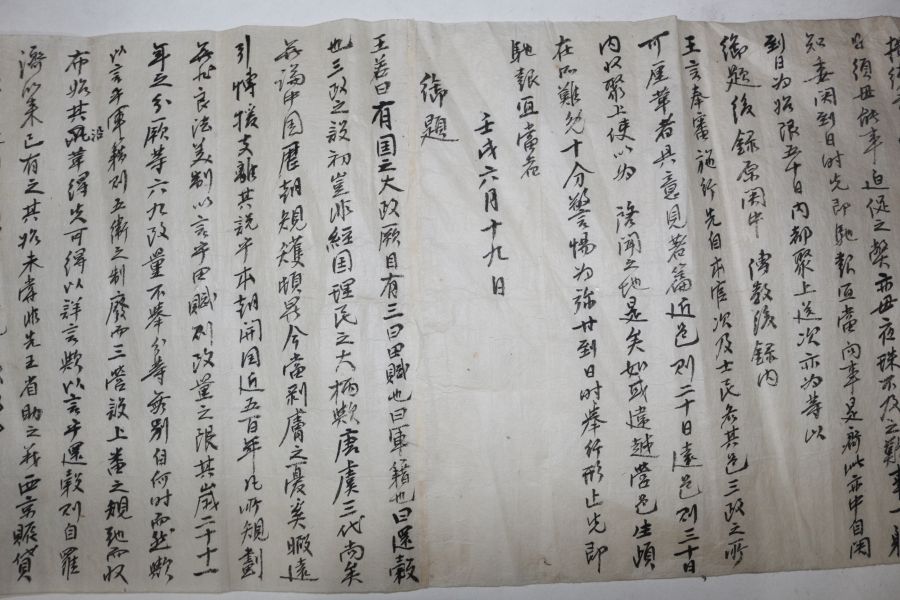 只須毋能事迫促之弊亦毋夜殊不及之難事一
知委関到日時先即馳報宜當向事是衙此亦中自関
到日為始限五十日內都聚上送次亦為等以
御題後錄原関中 傳教後錄內
王言奉審施行先自本官次及士民名其邑三政之所
可釐革者具意見著篇近邑則二十日遠邑則三十日
內收聚上使以為 登聞之地是矣如或違越營邑生頉
在所難免十分警惕為㫆廿到日時擧行形止先即
馳報宜當者
壬戌六月十九日
御題
王若曰有国之大政厥目有三曰田賦也曰軍籍也曰還穀
也三政之設初豈非經国理民之大柄歟唐虞三代尚矣
無論中国歷朝規頗異今當剝膚之憂奚暇遠
引愽援支離其說乎本朝開国近五百年凡所規劃
無非良法美制以言乎田賦則改量之限其歲二十
年之分厥等六九改量不擧分等無別自何時而然歟
以言乎軍籍則五衛之制廢而三營設上番之規弛而收
布始其沿革得失可得以詳言歟以言乎還穀則自羅
濟以來已有之其始未嘗非先王省助之義西京賑貸